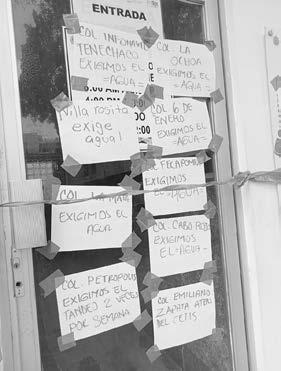 ENTRADA
COL.
TENECHACO
EXIGIMOS EL
=AGUA=
COL. LA
OCHOA
EXIGIMOS EL
=AGUA=
Villa rosita
exige
agua!
COL 6 DE
ENERO
EXIGIMOS EL
=AGUA=
COL. LA MATA
EXIGIMOS EL
AGUA
EXIGIMOS
EL=AGUA=
COL. CABO ROJO
EXIGIMOS
EL=AGUA-
COL. PETROPOLIS
EXIGIMOS EL
TANDEO 2 VECES
POR SEMANA
COL. EMILIANO
ZAPATA
DEL CETIS